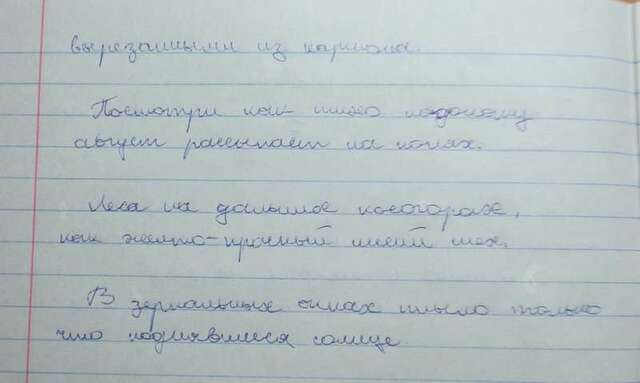 вырезанными из картона.
Посмотри как тихо по-доному
август рассыпает на полях.
Леса на дальнее косогорах,
как желто-красный лисий мех.
В зеркальных окнах плыло только
что поднявшиеся солнце.